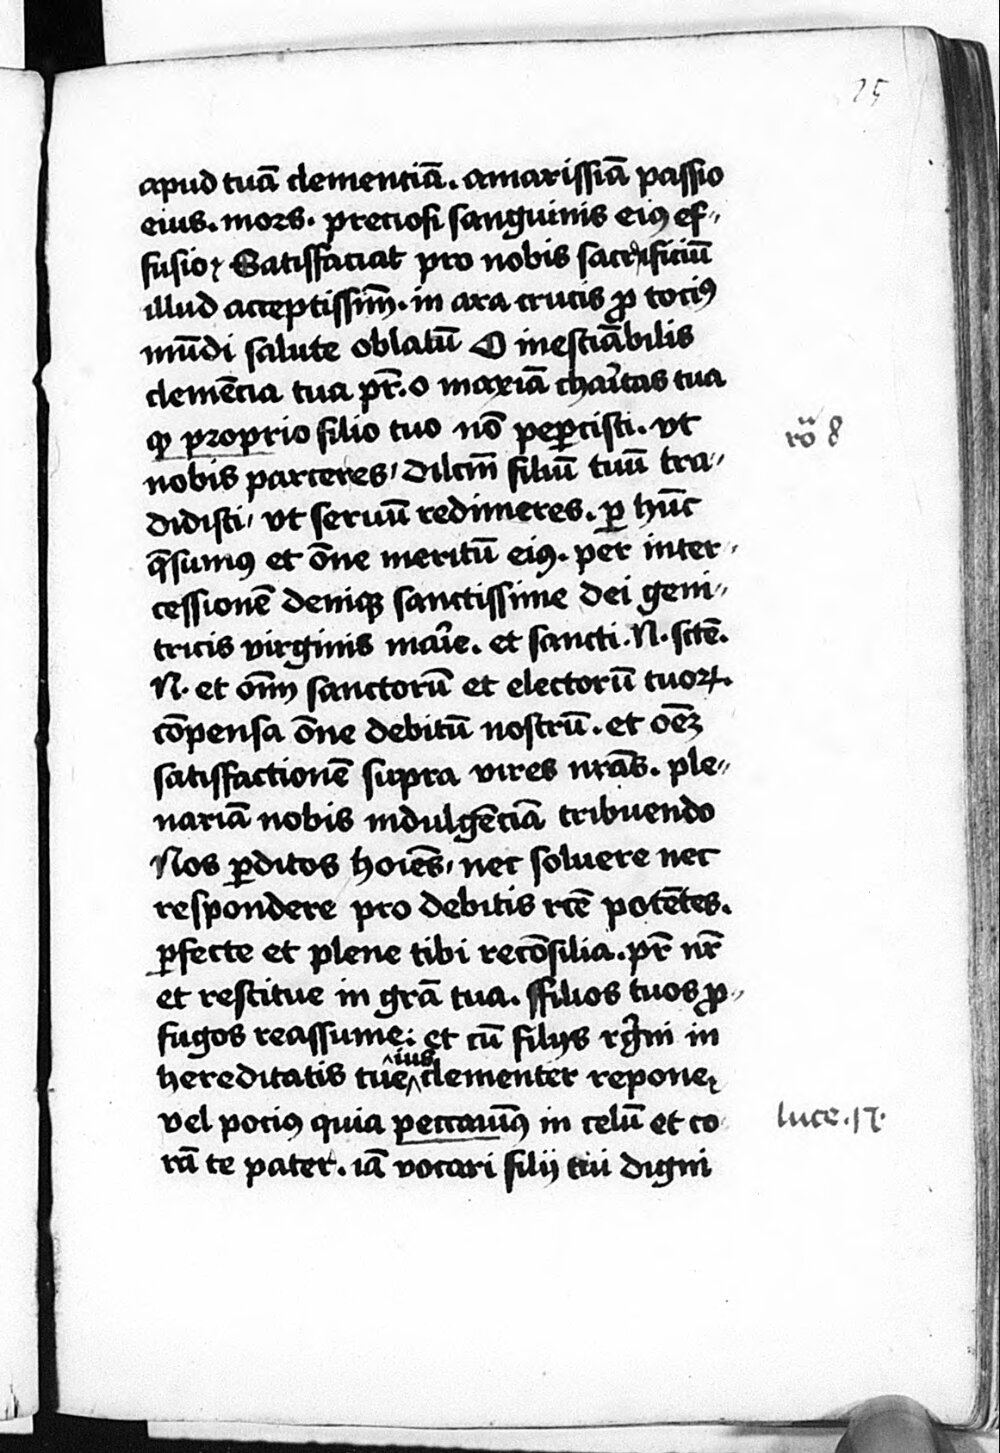 25
apud tuā clementiā. amarissīā passio
eius. mors. preciosi sanguinis eiꝰ ef-
fusio. Satisfaciat pro nobis sacrificiū
illud acceptissim̄. in ara crucis ꝓ tociꝰ
mūdi salute oblatū O inestiābilis
clemēcia tua pr̄. o maxīā charitas tua
ꝙ proprio filio tuo nō peꝑcisti. vt
rō 8
nobis parceres, dilc̄m filiū tuū tra-
didisti, vt seruū redimeres. ꝑ hūc
q̄sumꝰ et ōne meritū eiꝰ. per inter-
cessionē deniqꝫ sanctissime dei geni-
tricis virginis marie. et sancti .N. sctē.
N. et om̄ sanctorū et electorū tuoꝝ.
cōpensa ōne debitū nostrū. et oēꝫ
satisfactionē supra vires nr̄as. ple-
nariā nobis indulgēciā tribuendo
Nos ꝑditos hoīes, nec soluere nec
respondere pro debitis rc̄e potētes.
ꝑfecte et plene tibi recōsilia. pr̄ nr̄
et restitue in gr̄a tua. ffilios tuos ꝓ-
fugos reassume: et cū filijs rḡni in
ius
hereditatis tue clementer repone
vel pociꝰ quia peccauimꝰ in celū et co
luce .15.
rā te pater. iā vocari filij tui digni